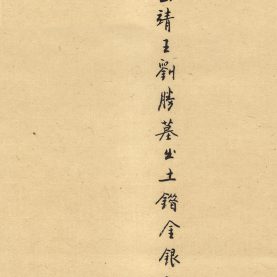 靖王劉勝墓出土錯金銀